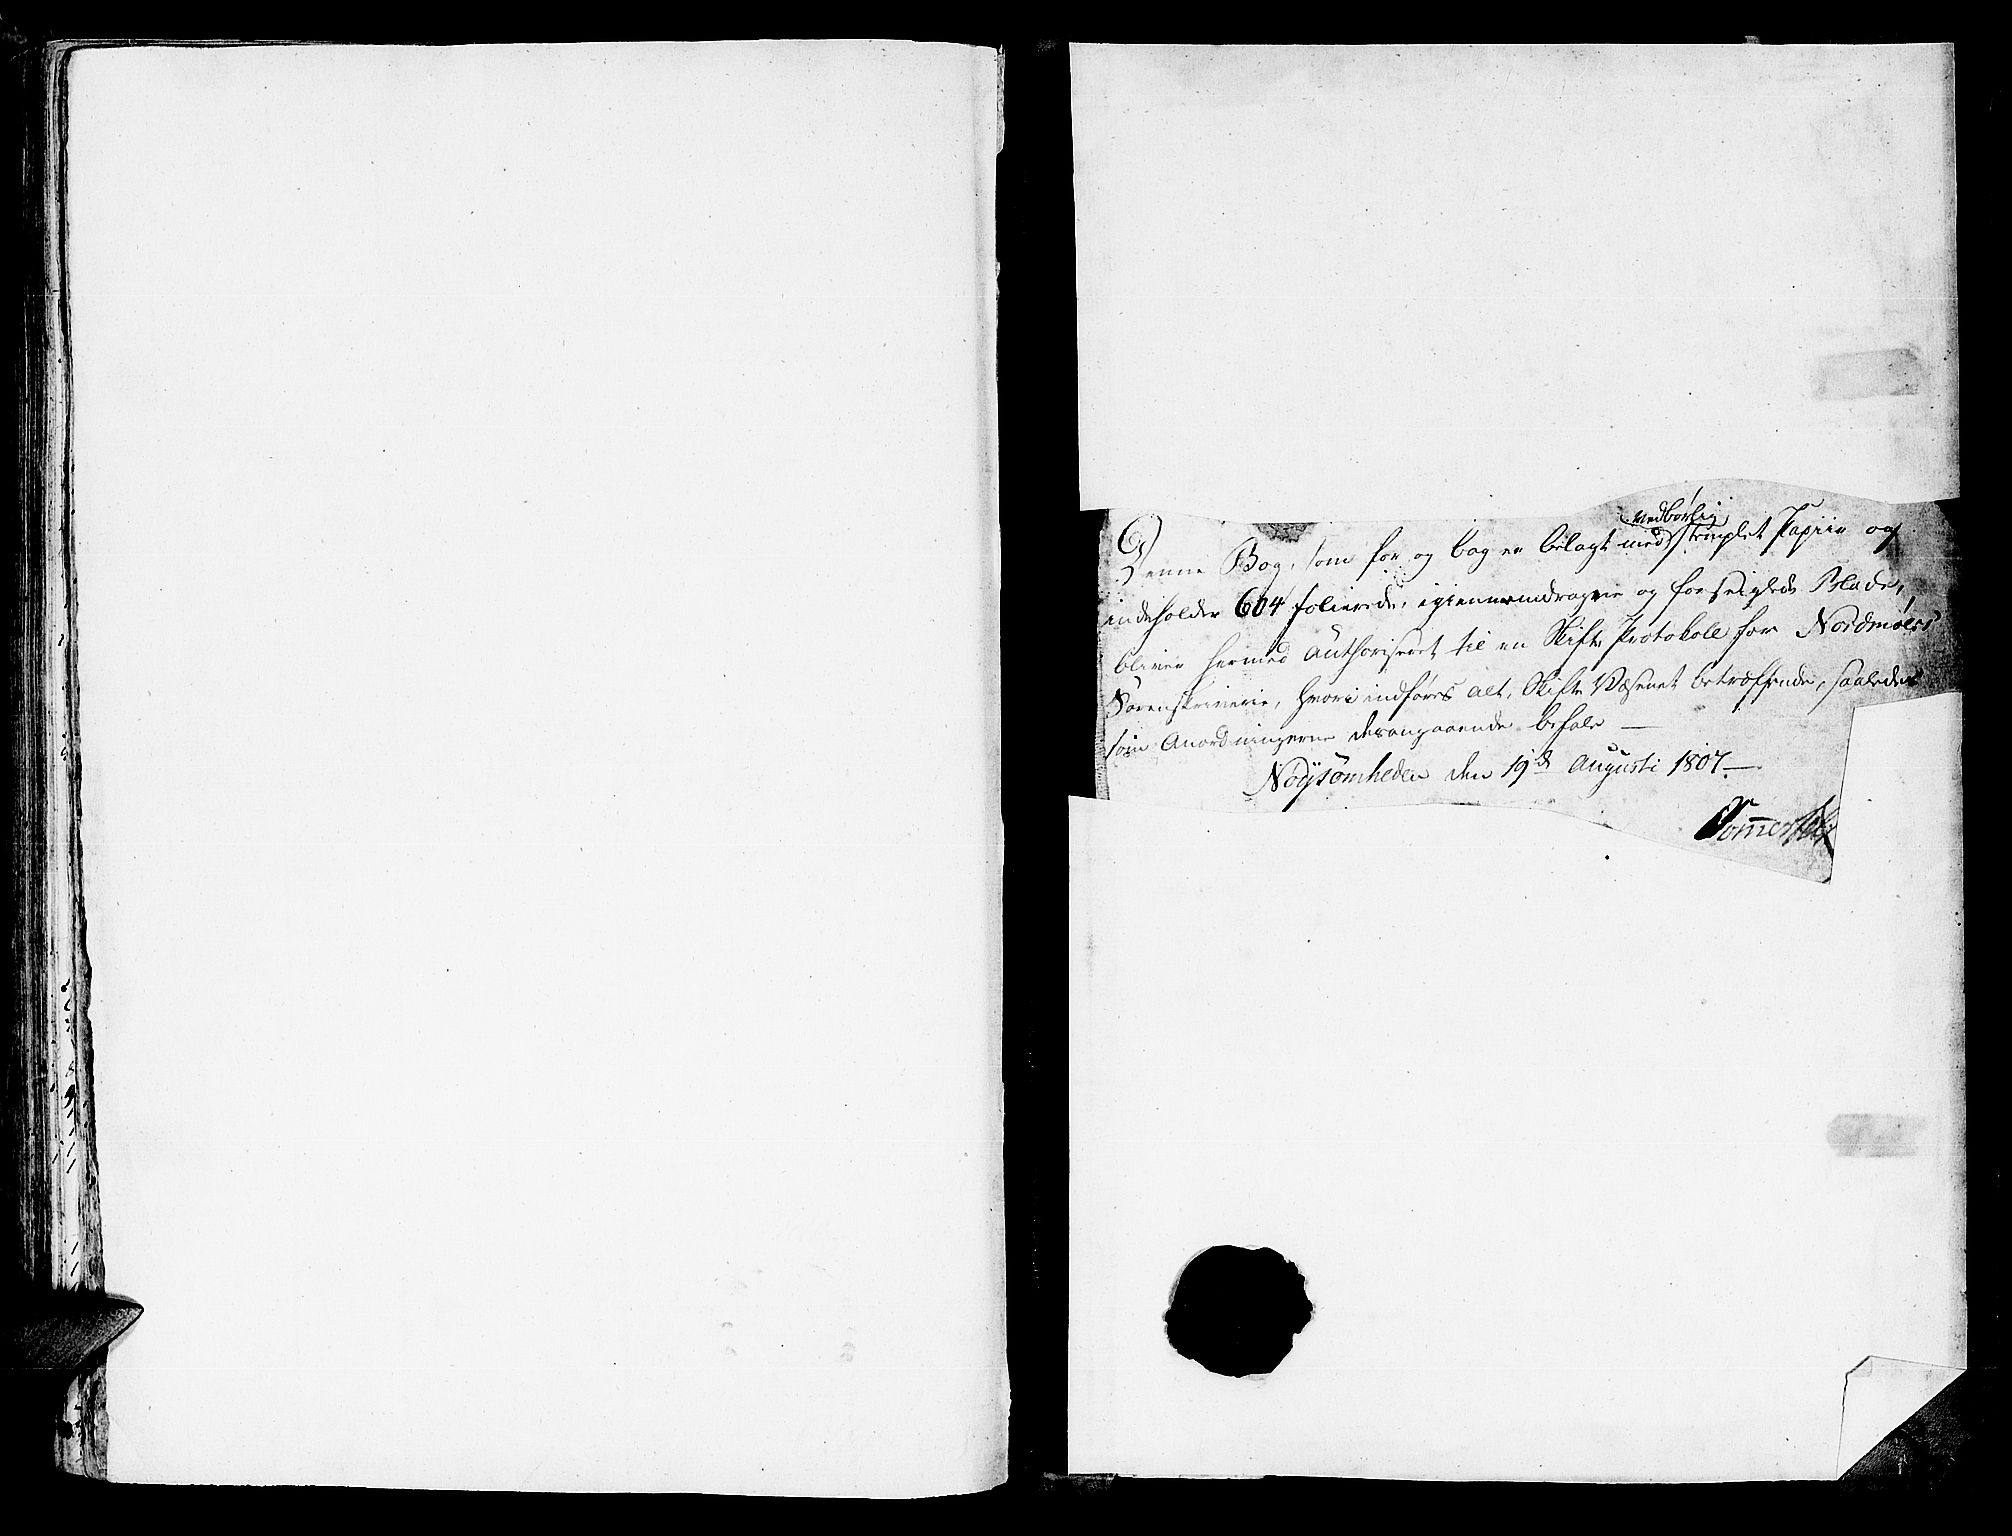 vedbørlig
Denne Bog, som for og bag er belagt med stemplet Papiir og
indeholder 604 folierede, igiennemdragne og forseiglede Blade,
bliver hermed authoriseret til en Skifte Protokoll for Nordmøers
Sorenskriverie, hvori indføres alt, Skifte Væsenet betræffende, saaledes
som Anordningerne desangaaende befale —
Nøysomheden den 19de Augusti 1807. —